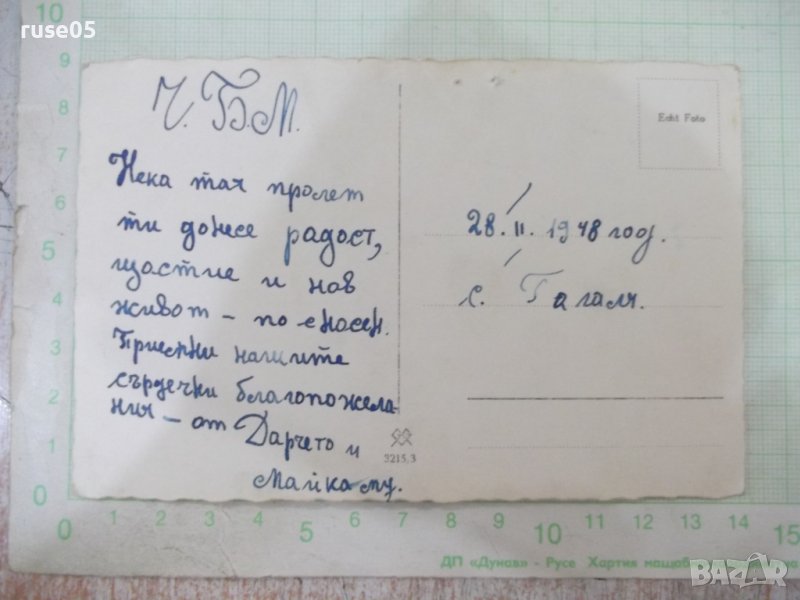 ruse05
10
9
8
7
6
5
4
3
2
1
0
Ч. Б. М.
Нека тая пролет
ти донесе радост,
щастие и нов
живот – по сносен.
Приемни нашите
сърдечни благопожела-
ния – от Дарчето и
Майка му.
Echt Foto
28. II. 1948 год.
с. Гагаля.
3215.3
0 1 2 3 4 5 6 7 8 9 10 11 12 13 14 15
ДП «Дунав» – Русе Хартия мащаб
BAZAR